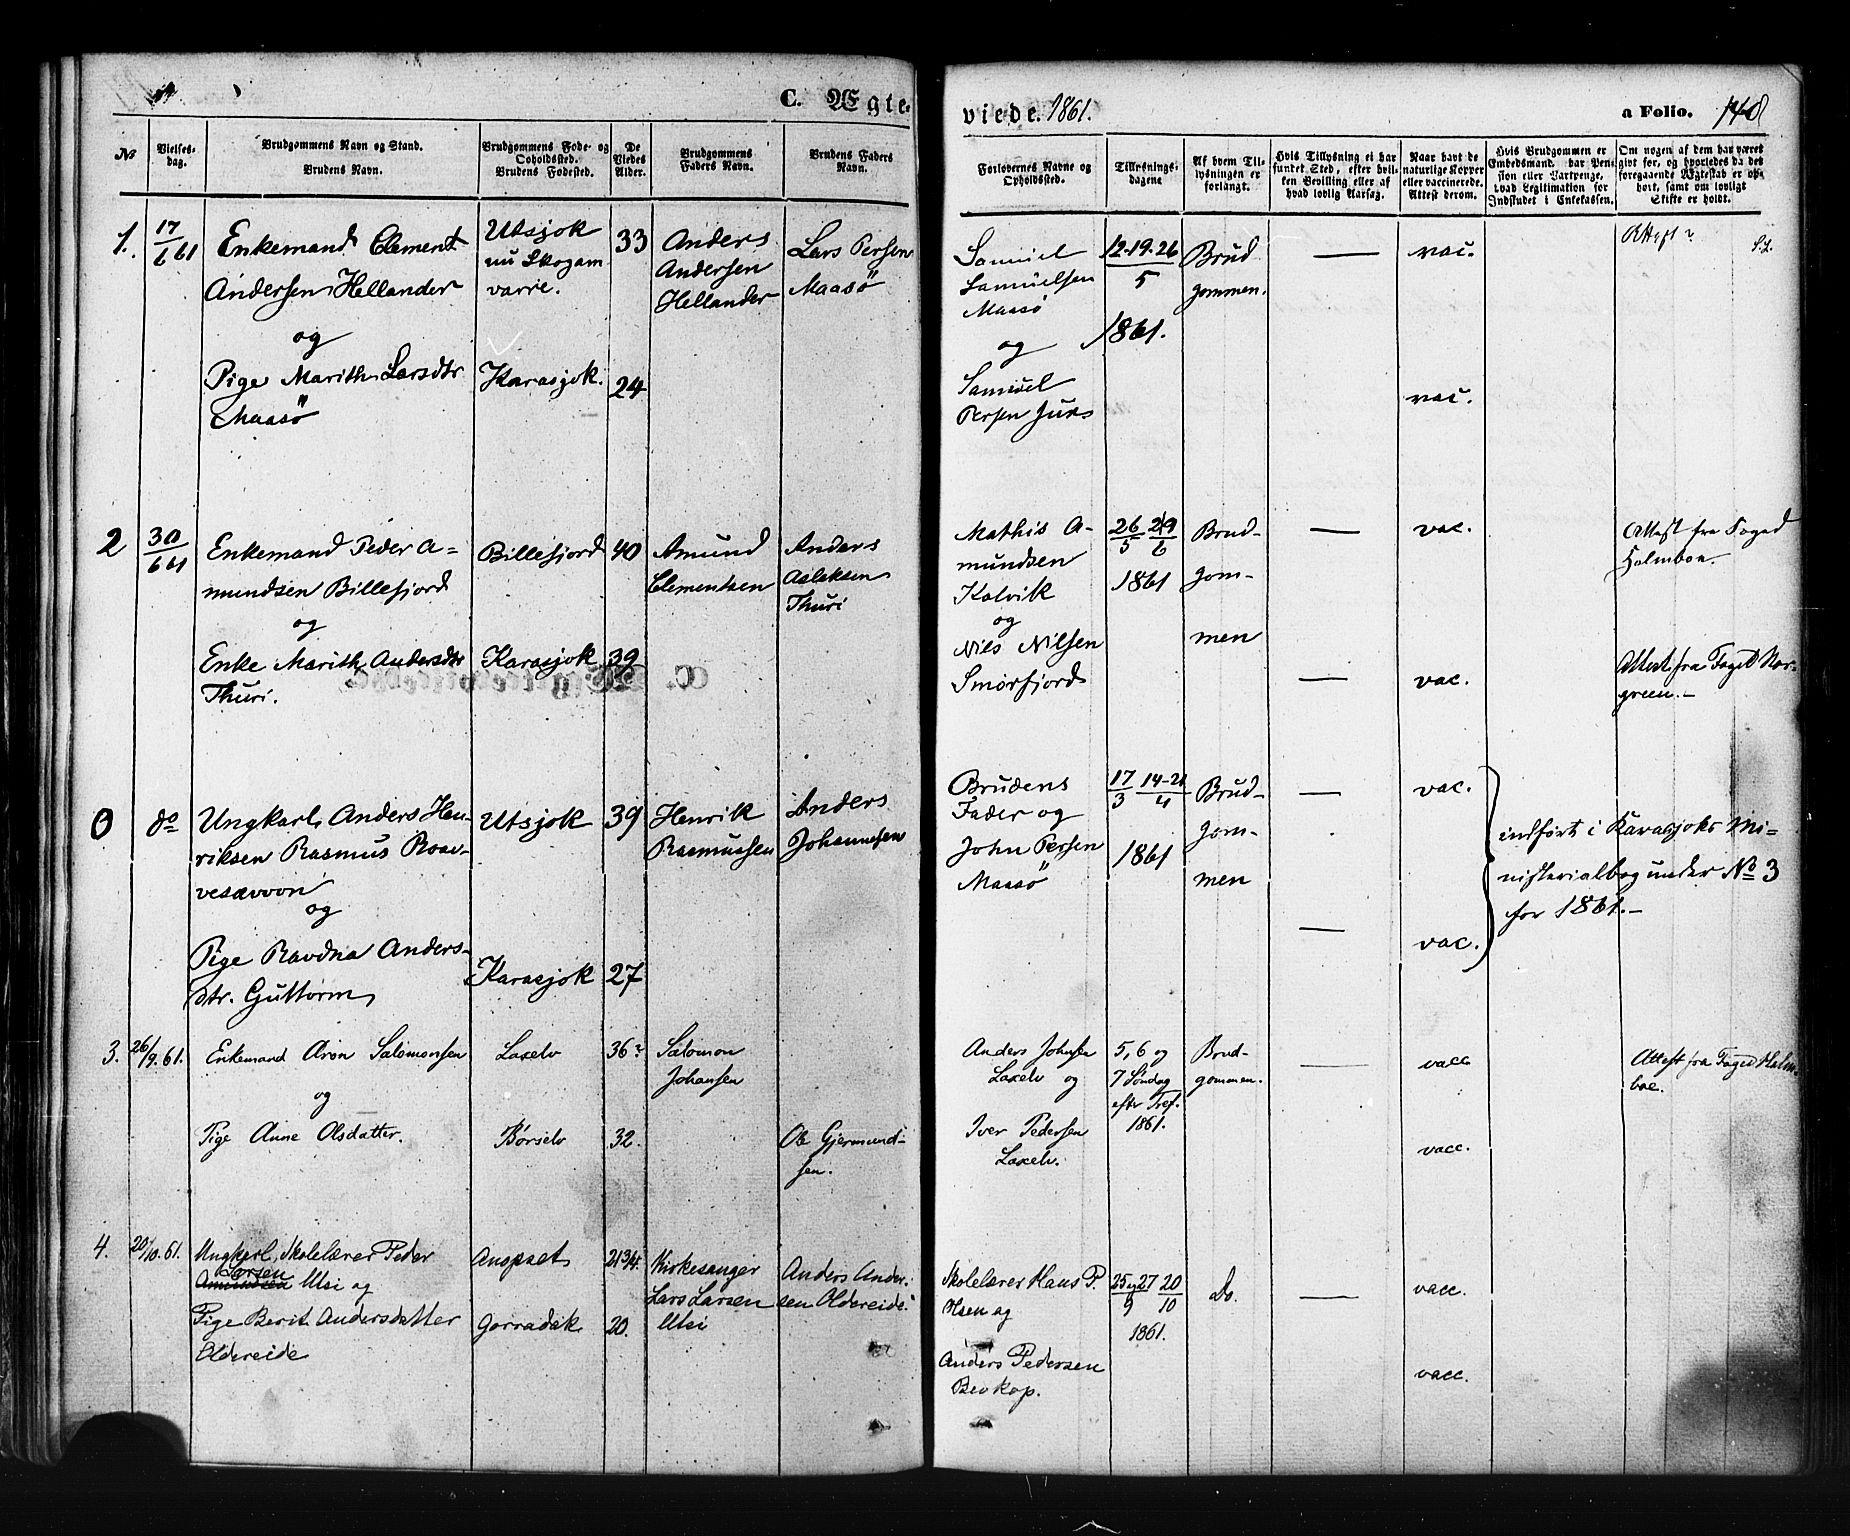 C. Ægte-
viede. 1861.
a Folio. 148
№
Vielses-
dag.
Brudgommens Navn og Stand.
Brudens Navn.
Brudgommens Føde- og
Opholdssted.
Brudens Fødested.
De
Viedes
Alder.
Brudgommens
Faders Navn.
Brudens Faders
Navn.
Forlovernes Navne og
Opholdssted.
Tillysnings-
dagene
Af hvem Til-
lysningen er
forlangt.
Hvis Tillysning ei har
fundet Sted, efter hvil-
ken Bevilling eller af
hvad lovlig Aarsag.
Naar havt de
naturlige Kopper
eller vaccinerede.
Attest derom.
Hvis Brudgommen er
Embedsmand, har Pen-
sion eller Vartpenge,
hvad Legitimation for
Indskudet i Enkekassen.
Om nogen af dem har været
givt for, og hvorledes da det
foregaaende Ægteskab er op-
hørt, samt om lovligt
Skifte er holdt.
1.
17
6 61
Enkemand Clement
Andersen Hellander
og
Pige Marith Larsdtr
Maasö
Utsjok
nu Skogam
varre.
Karasjok.
33
24
Anders
Andersen
Hellander
Lars Persen
Maasö
Samuel
Samuelsen
Maasö
og
Samuel
Persen Juks
12-19-26
5
1861.
Brud
gommen.
—
vac.
vac.
Attest?
2
30
6 61
Enkemand Peder A-
mundsen Billefjord
og
Enke Marith Andersdtr
Thuri.
Billefjord
Karasjok
40
39
Amund
Clementsen
Anders
Aslaksen
Thuri
Mathis A-
mundsen
Kolvik
og
Nils Nilsen
Smörfjord
26 2,9
5 6
1861
Brud-
gom-
men
—
—
vac.
vac.
Attest fra Foged
Holmboe.
Attest fra Foged Nor-
green.-
0
do
Ungkarl Anders Hen-
riksen Rasmus Roav-
vesavvon
og
Pige Ravdna Anders-
dtr. Guttorm
Utsjok
Karasjok
39
27
Henrik
Rasmussen
Anders
Johannesen
Brudens
Fader og
John Persen
Maasö
17 14-21
3 4
1861
Brud-
gom-
men
—
—
vac.
vac.
indfört i Karasjoks Mi-
nisterialbog under No 3
for 1861.-
3.
26/9. 61.
Enkemand Aron Salomonsen
og
Pige Anne Olsdatter.
Laxelv
Börselv
36?
32.
Salomon
Johansen
Ole Gjermund-
sen.
Anders Johnsen
Laxelv og
Iver Pedersen
Laxelv.
5, 6 og
7 Söndag
efter Tref.
1861.
Brud-
gommen.
—
—
vacc
vacc.
Attest fra Foged Holm-
boe.
4.
20/10. 61.
Ungkarl, Skolelærer Peder
Larsen
Amundsen Utsi og
Pige Berit Andersdatter
Oldereide
Anopset
Gorradak
21 3/4.
20.
Kirkesanger
Lars Larsen
Utsi
Anders Ander-
sen Oldereide.
Skolelærer Hans P.
Olsen og
Anders Pedersen
Bevkop.
25 og 27 20
9 10
1861.
Do.
—
vacc.
vacc.